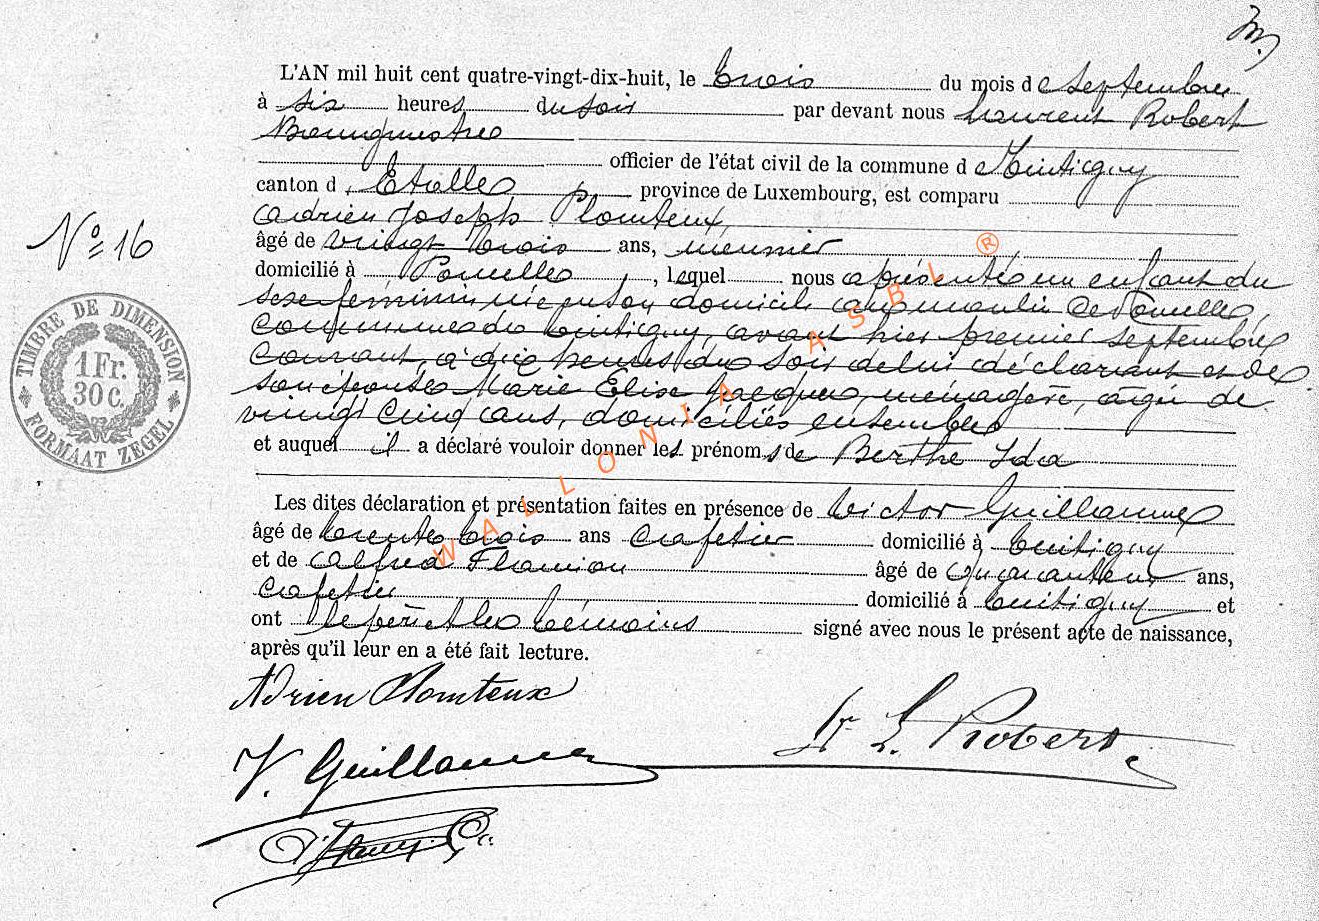 L'AN mil huit cent quatre-vingt-dix-huit, le trois du mois de septembre
à six heures du soir par devant nous Laurent Robert
Bourgmestre
officier de l'état civil de la commune de Tintigny
canton d'Etalle province de Luxembourg, est comparu
Adrien Joseph Plomteux,
âgé de vingt trois ans, meunier
domicilié à Poncelle, lequel nous a présenté un enfant du
sexe féminin née en son domicile au moulin de Poncelle,
commune de Tintigny, avant hier premier septembre
courant, à dix heures du soir de lui déclarant et de
son épouse Marie Elise Jacques, ménagère, âgée de
vingt cinq ans, domiciliés ensemble
et auquel il a déclaré vouloir donner les prénoms de Berthe Ida
Les dites déclaration et présentation faites en présence de Victor Guillaume
âgé de trente trois ans cafetier domicilié à Tintigny
et de Alfred Flamion âgé de quarante ans,
cafetier domicilié à Tintigny et
ont le père et les témoins signé avec nous le présent acte de naissance,
après qu'il leur en a été fait lecture.
Adrien Plomteux
Dr L. Robert
V. Guillaume
N° 16
TIMBRE DE DIMENSION
1 Fr.
30 C.
FORMAAT ZEGEL
WALLONIA ASBL ®